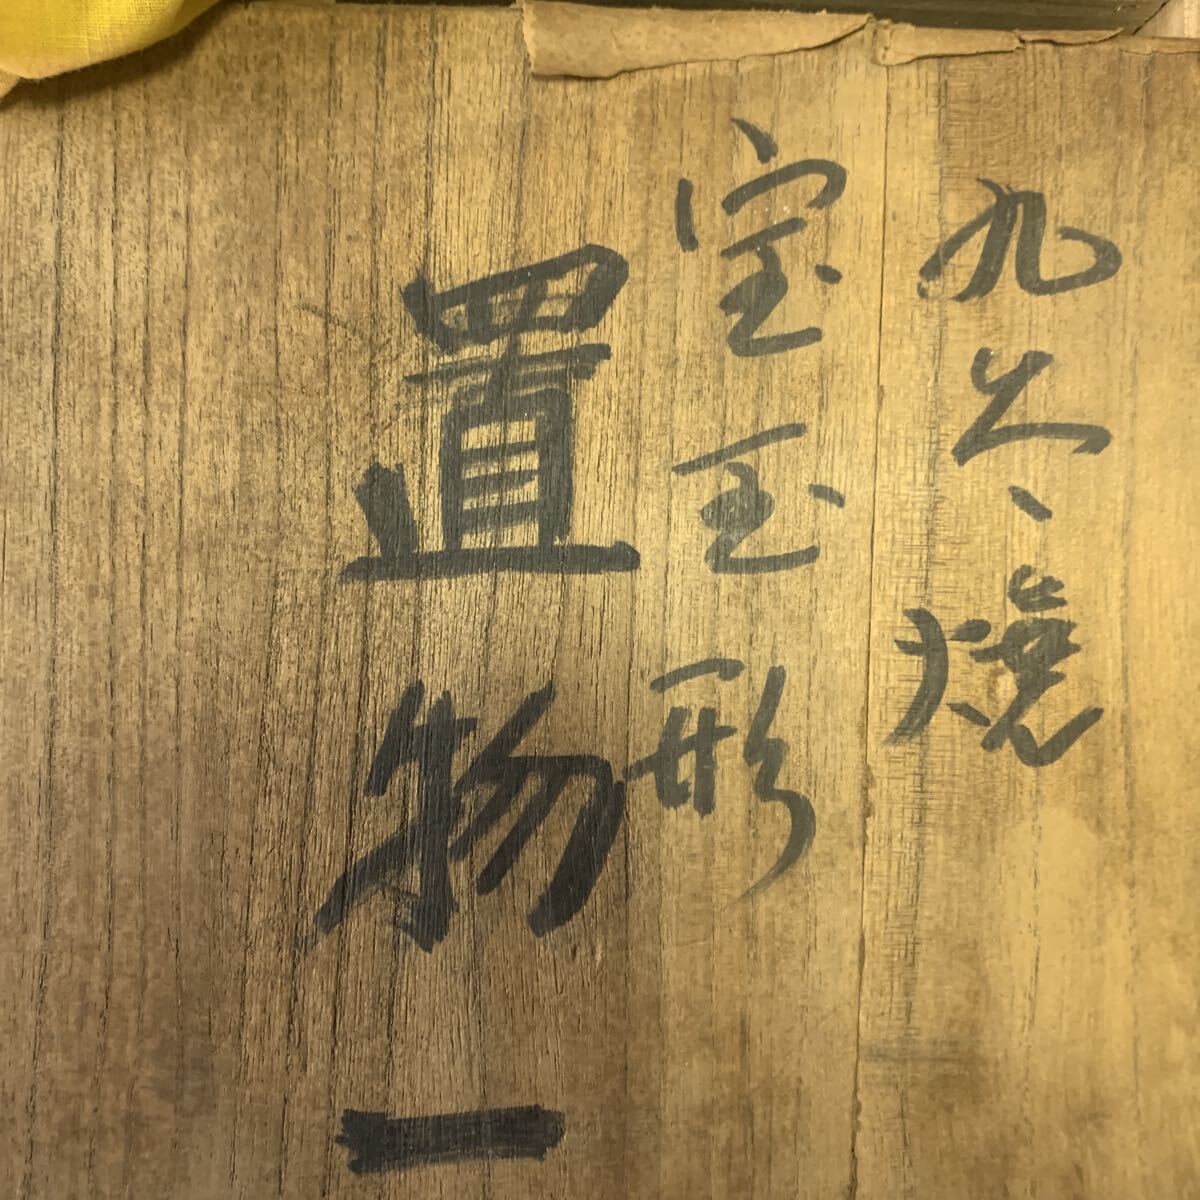 九谷焼
宝玉形
置物一